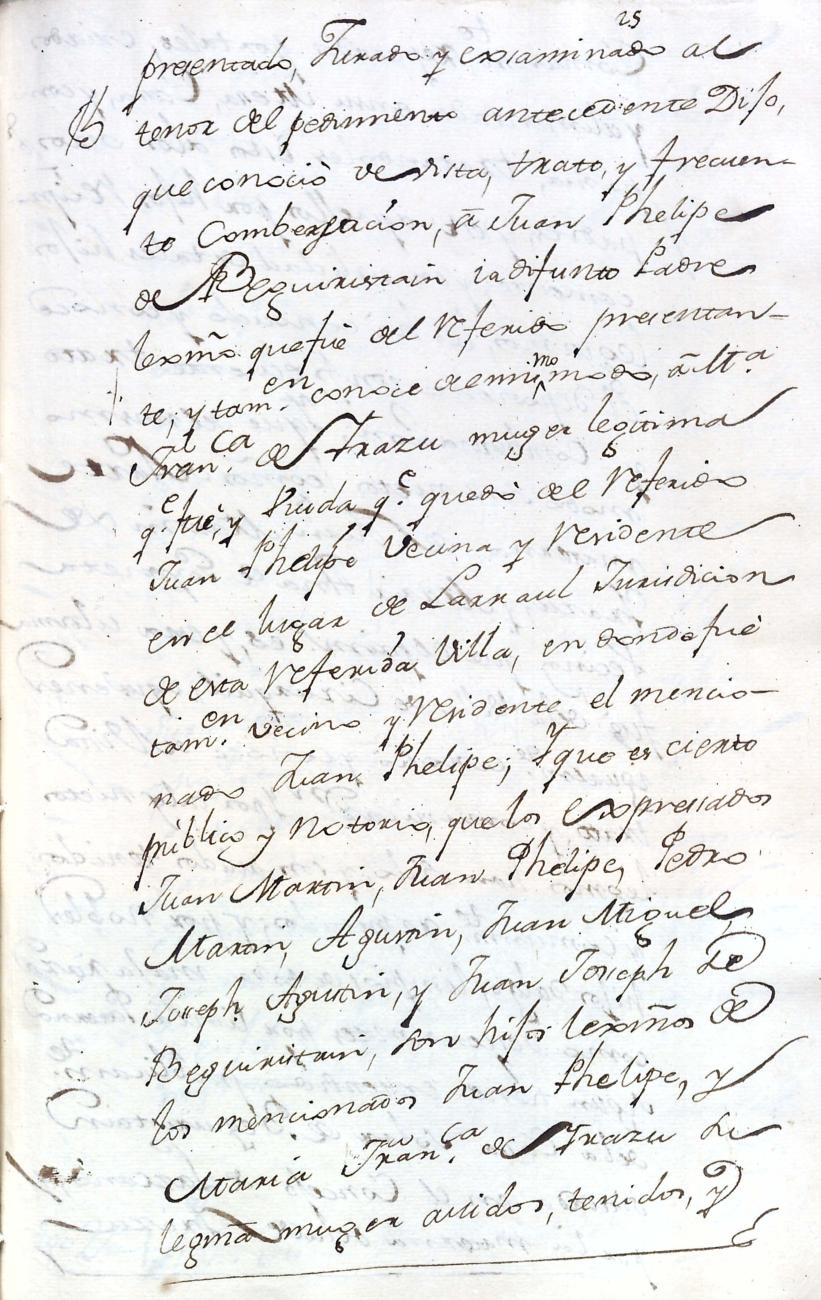 25
presentado, Jurado y exsaminado al
tenor del pedimiento antecedente Dijo,
que conociò de vista, trato, y frecuen-
te Combersacion, â Juan Phelipe
de Beguiristain ia difunto Padre
lexmô. que fuè del referido presentan-
te; y tam.en conoce del mismo modo, â M.a
Fran.ca de Yrazu muger legitima
q.e fuè, y Viuda q.e quedò del referido
Juan Phelipe Vecina y residente
en el lugar de Larraul Jurisdicion
de esta referida Villa, en donde fuè
tam.en vecino y residente el mencio-
nado Juan Phelipe; Y que es cierto
pùblico y notorio, que los Expressados
Juan Martin, Juan Phelipe, Pedro
Martin, Agustin, Juan Miguel,
Joseph Agustin, y Juan Joseph de
Beguiristain, son hijos lexmôs de
los mencionados Juan Phelipe, y
Maria Fran.ca de Yrazu su
legmâ muger avidos, tenidos, y